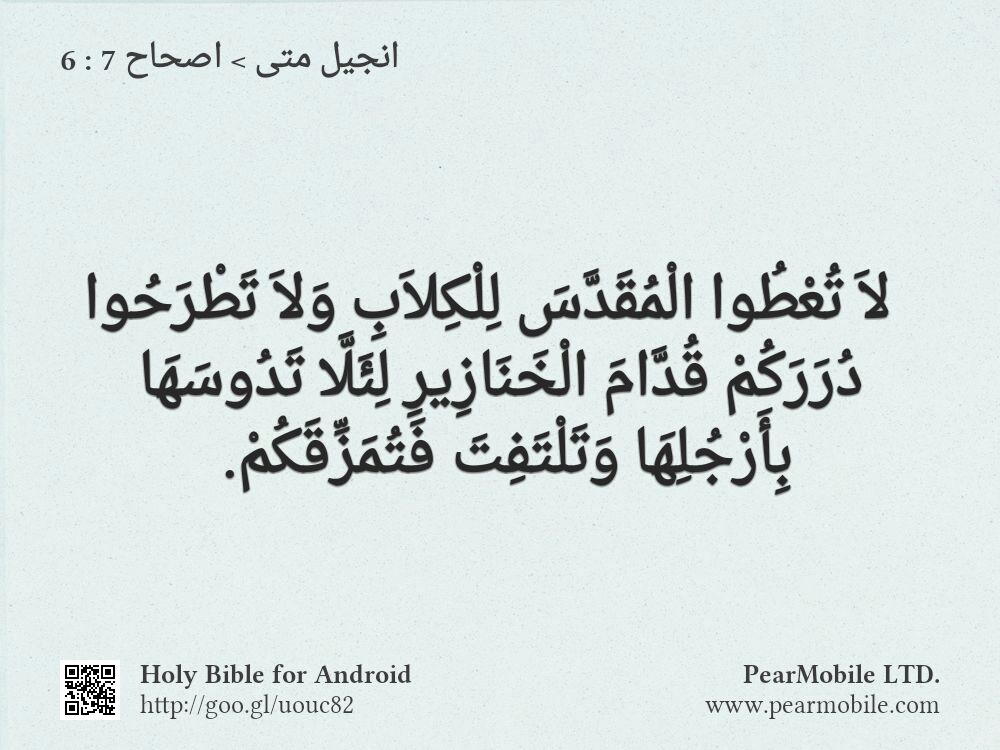 انجيل متى > اصحاح 7 : 6
لاَ تُعْطُوا الْمُقَدَّسَ لِلْكِلاَبِ وَلاَ تَطْرَحُوا
دُرَرَكُمْ قُدَّامَ الْخَنَازِيرِ لِئَلَّا تَدُوسَهَا
بِأَرْجُلِهَا وَتَلْتَفِتَ فَتُمَزِّقَكُمْ.
Holy Bible for Android
http://goo.gl/uouc82
PearMobile LTD.
www.pearmobile.com